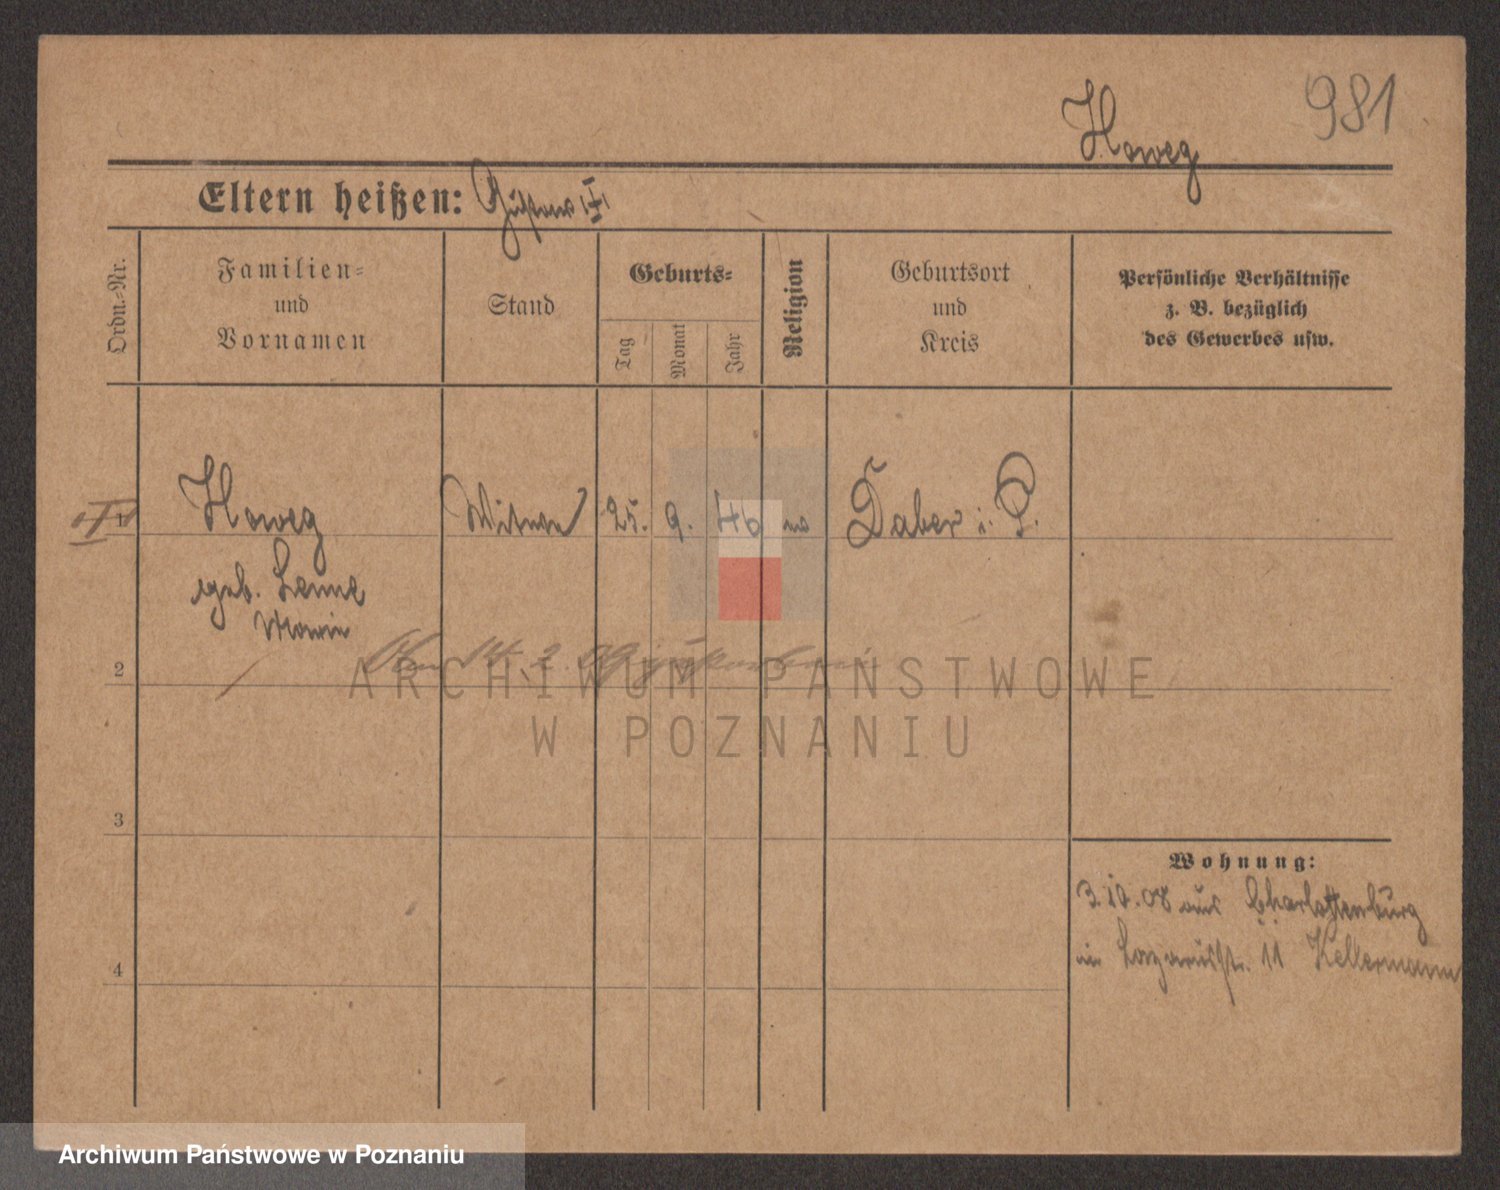 981
Howeg
Eltern heißen: Gustav
Ordn.-Nr.
Familien-
und
Vornamen
Stand
Geburts-
Tag
Monat
Jahr
Religion
Geburtsort
und
Kreis
Persönliche Verhältnisse
z. B. bezüglich
des Gewerbes usw.
1
Howeg Witwe 25. 9. 46 Daber i. P.
geb.
Marie
2
14. 2. 09 gestorben
ARCHIWUM PAŃSTWOWE
W POZNANIU
3
Wohnung:
3.10.08 aus Charlottenburg
in Lazarusstr. 11 Kellermann
4
Archiwum Państwowe w Poznaniu